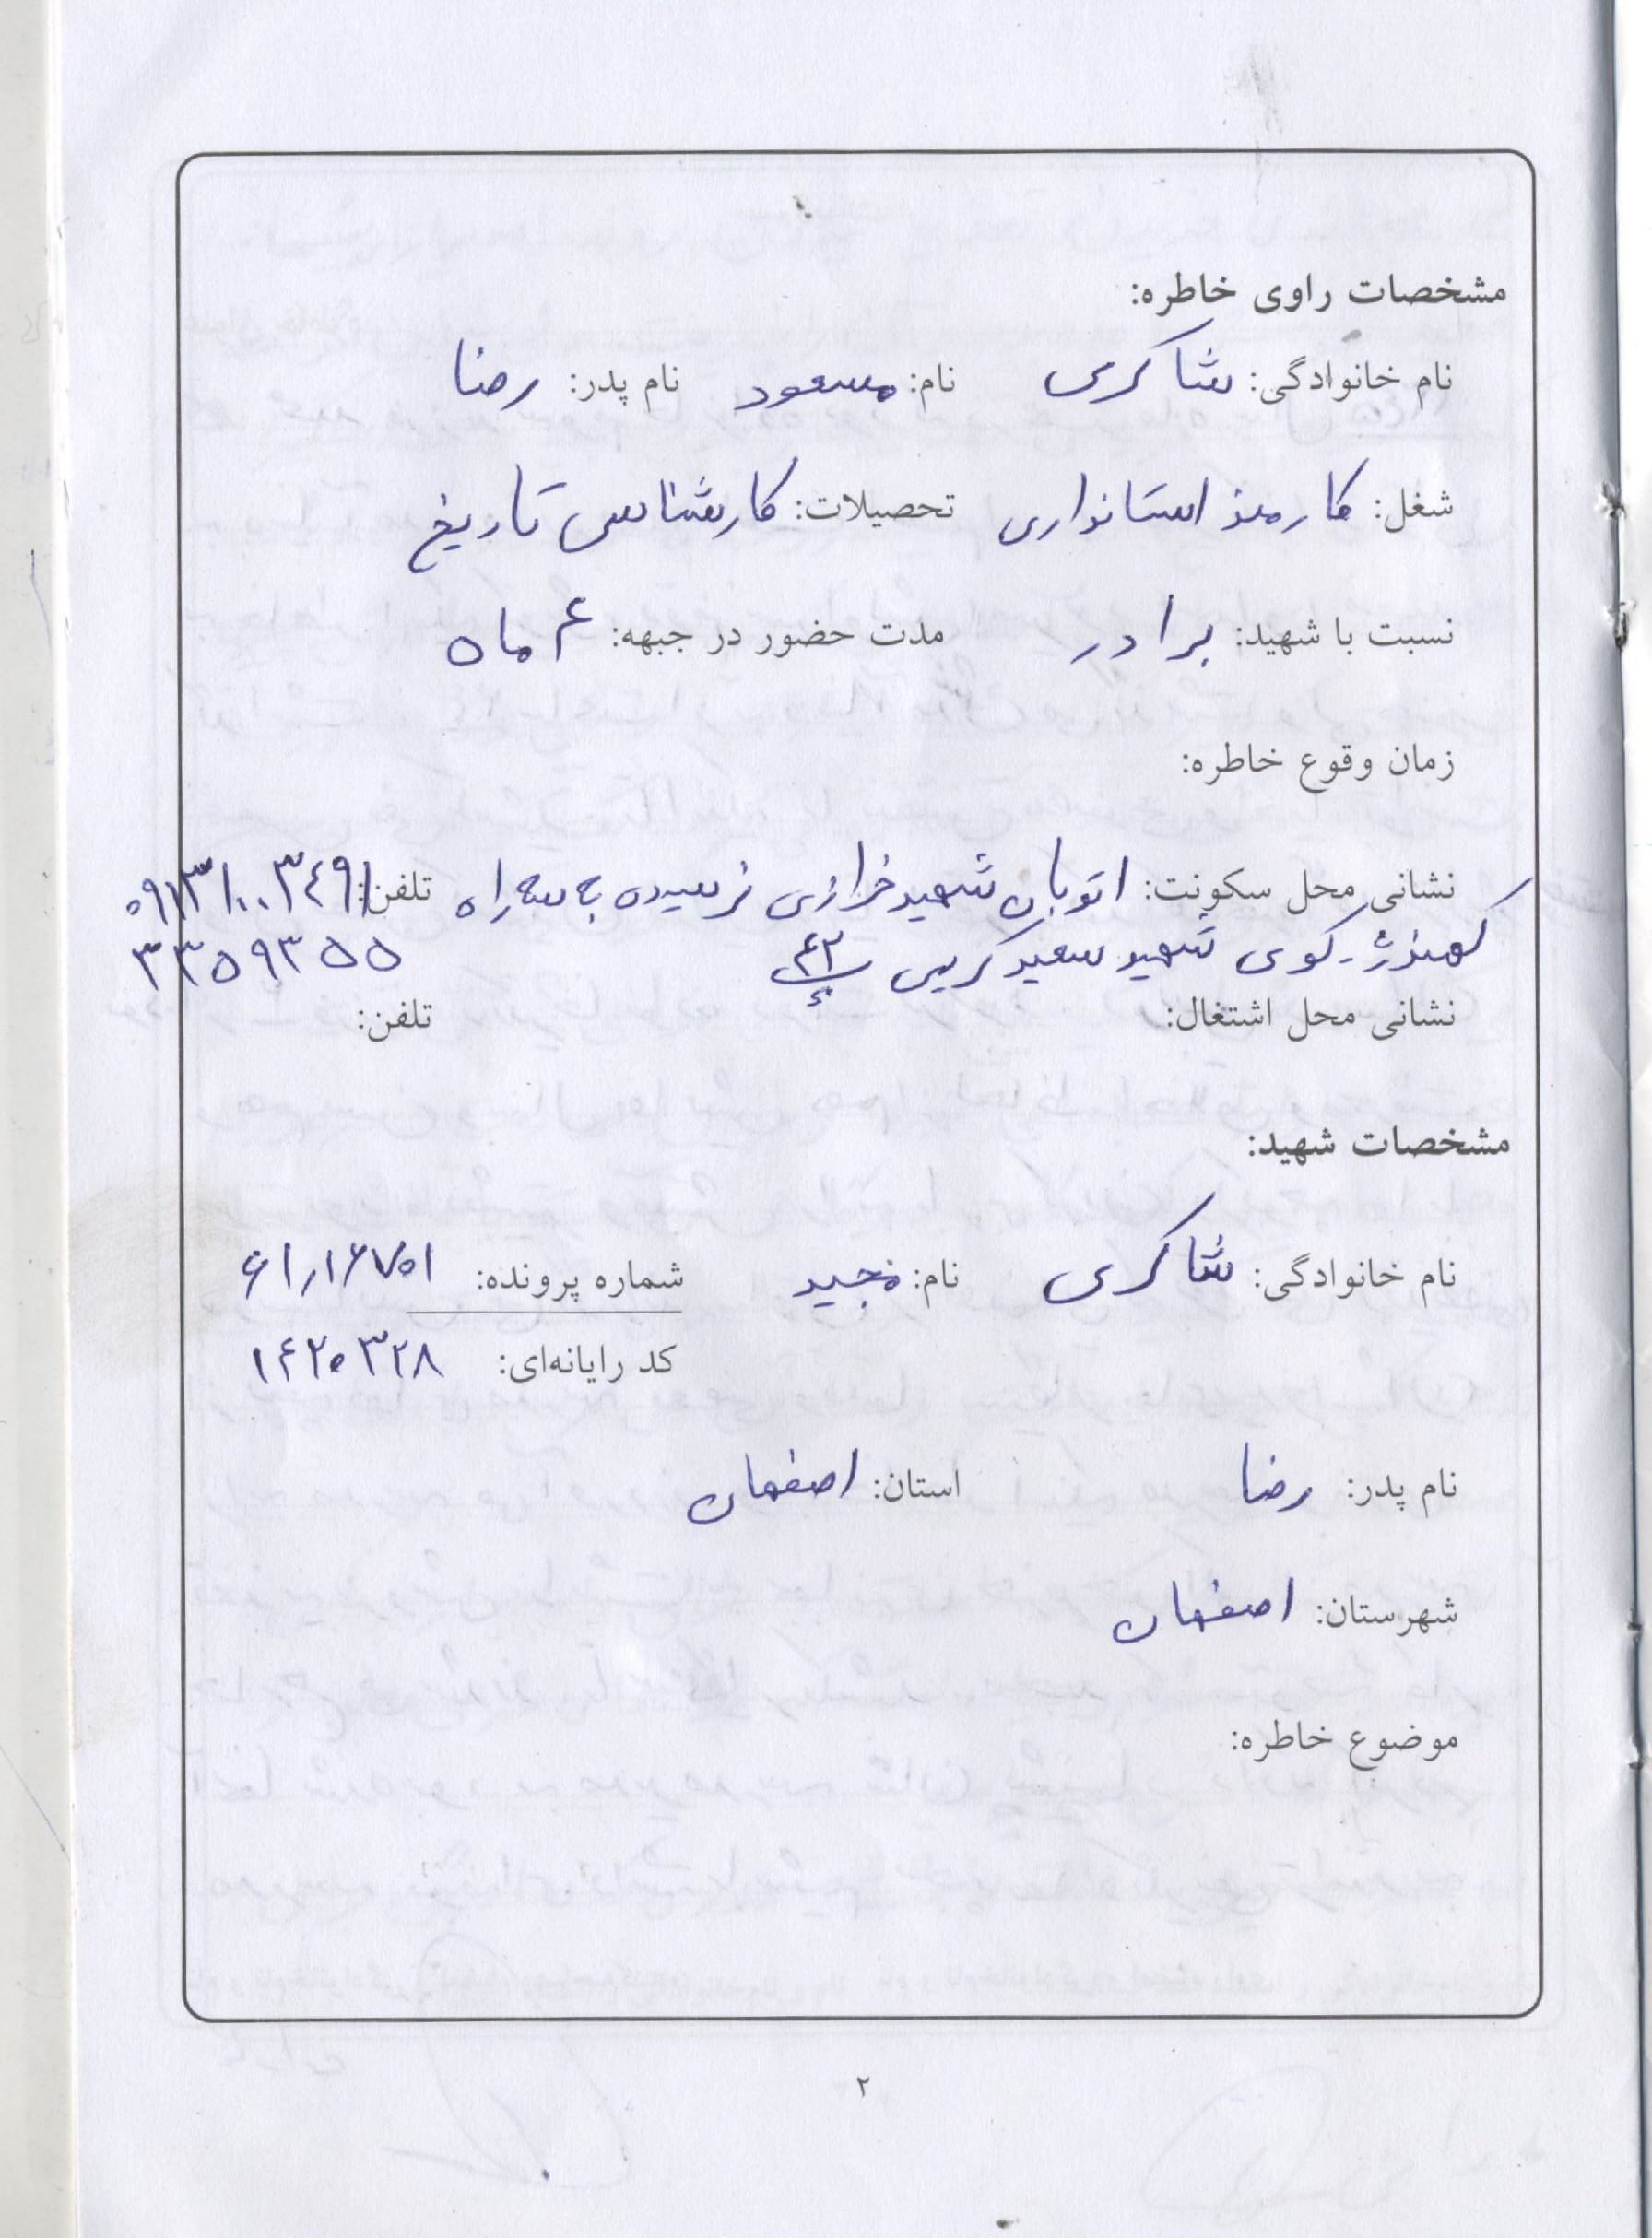 مشخصات راوی خاطره:
نام خانوادگی: شاکری نام: مسعود نام پدر: رضا
شغل: کارمند استانداری تحصیلات: کارشناسی تاریخ
نسبت با شهید: برادر مدت حضور در جبهه: ۶ ماه
زمان وقوع خاطره:
نشانی محل سکونت: اتوبان شهید خرازی نرسیده به سه راه تلفن: ۰۹۱۳۱۰۰۳۴۹۱
کهندژ. کوی شهید سعید کریمی ۳۳۵۹۳۵۵
نشانی محل اشتغال: تلفن:
مشخصات شهید:
نام خانوادگی: شاکری نام: مجید شماره پرونده: ۶۱٫۱۶۷۵۱
کد رایانه‌ای: ۱۶۲۰۳۲۸
نام پدر: رضا استان: اصفهان
شهرستان: اصفهان
موضوع خاطره:
۲